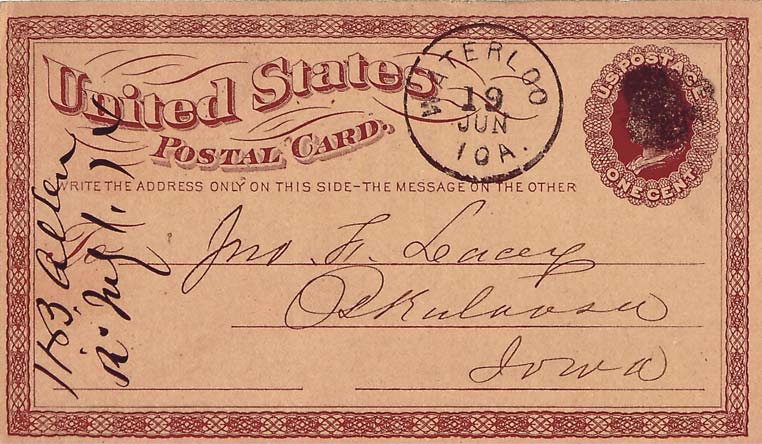 United States
POSTAL CARD.
WATERLOO
19
JUN
IOA.
U.S. POSTAGE
ONE CENT
WRITE THE ADDRESS ONLY ON THIS SIDE–THE MESSAGE ON THE OTHER
To
Jno. F. Lacey
Oskaloosa
Iowa
Allen